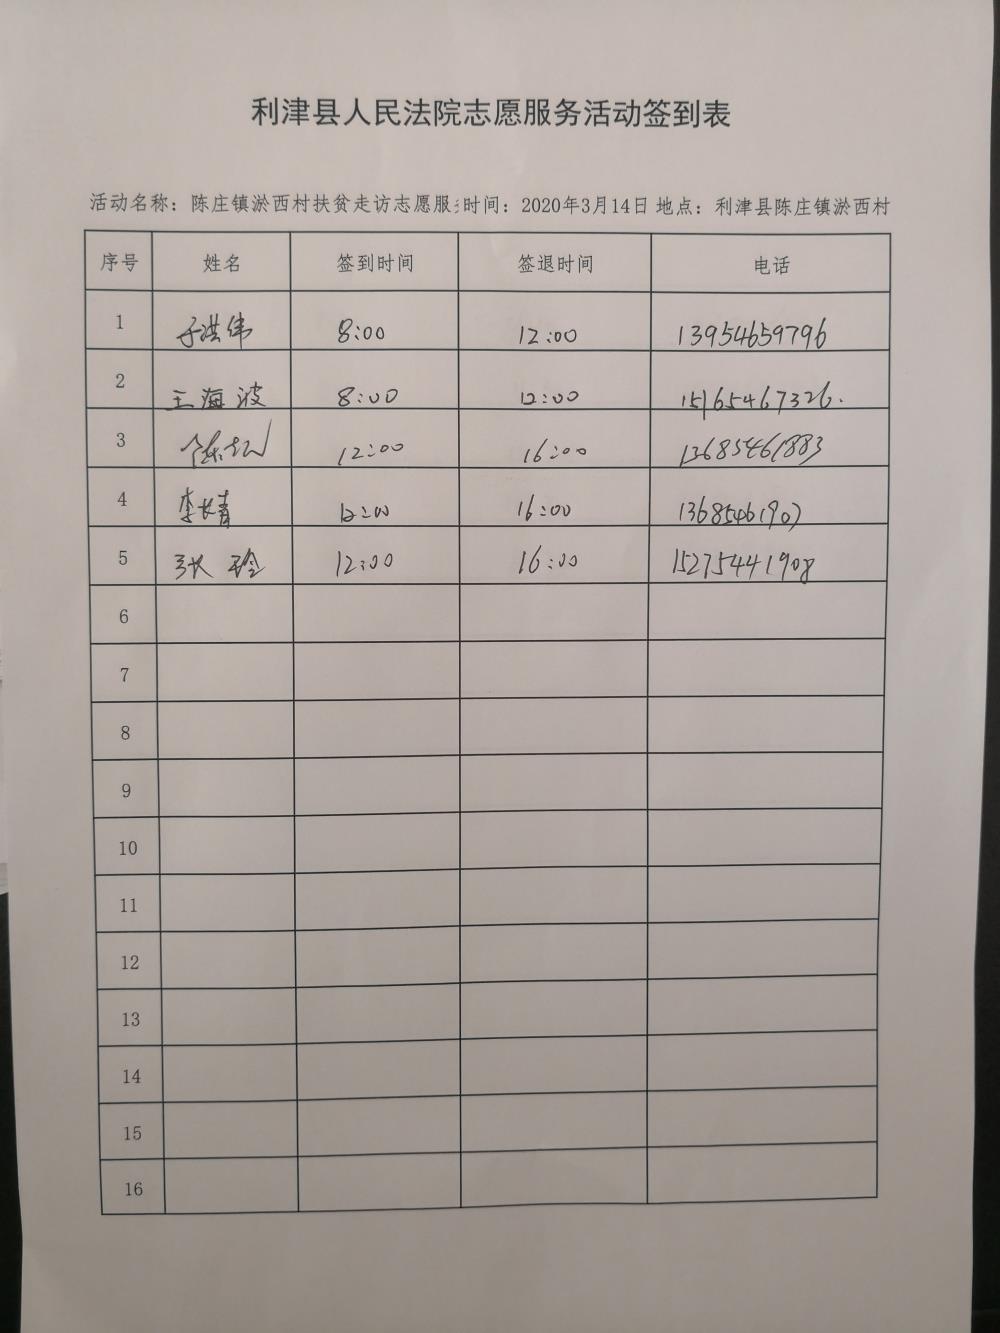 利津县人民法院志愿服务活动签到表
活动名称：陈庄镇淤西村扶贫走访志愿服 时间：2020年3月14日 地点：利津县陈庄镇淤西村
序号 姓名 签到时间 签退时间 电话
1 于洪伟 8:00 12:00 13954659796
2 王海波 8:00 12:00 15165467326.
3 12:00 16:00 13685461883
4 李长青 12:00 16:00 13685461907
5 张玲 12:00 16:00 15275441908
6
7
8
9
10
11
12
13
14
15
16